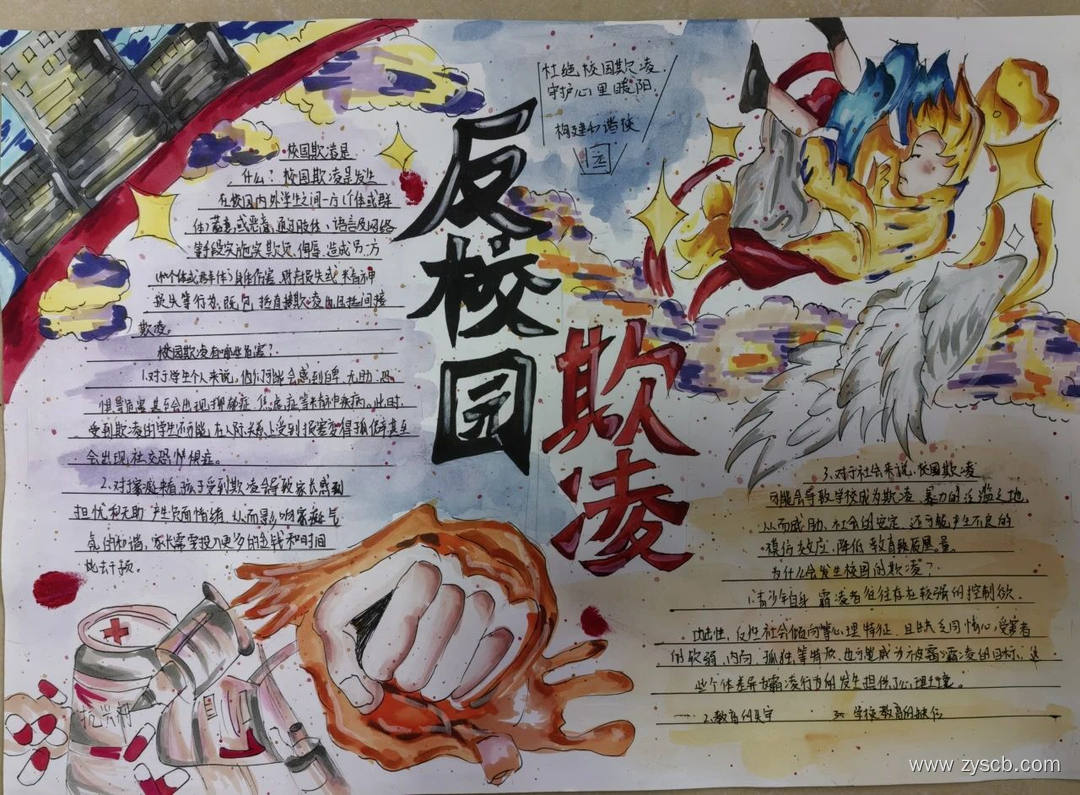 杜绝校园欺凌.
守护心里暖阳.
构建和谐校
园
反校园
欺凌
校园欺凌是
什么? 校园欺凌是发生
在校园内外学生之间一方(个体或群
体)蓄意或恶意通过肢体、语言及网络
等手段实施欺负、侮辱, 造成另一方
(个体或群体)身体伤害、财产损失或精神
损失等行为, 既包括直接欺凌也包括间接
欺凌。
校园欺凌有哪些危害?
1.对于学生个人来说, 他们可能会感到自卑、无助、恐
惧等
受到欺凌的学生还可能在人际关系上受到损害变得孤僻甚至
会出现社交恐惧症。
2.对 来看 孩子受到欺凌会导致家长感到
担忧和无助 产生负面情绪, 从而影响家庭气
氛的和谐, 家长需要投入更多的金钱和时间
去干预。
3.对于社会来说, 校园欺凌
可能会导致学校成为欺凌、暴力的泛滥之地,
社会的安定, 还可能产生不良的
模仿效应, 降低教育 质量。
为什么会发生校园的欺凌?
1.青少年自身 霸凌者往往存在较强的控制欲、
攻击性, 反性社会倾向等心理特征, 且缺乏同情心, 受害者
的软弱、内向、孤独等特质, 也可能成为被霸凌的目标, 这
些个体差异为霸凌行为的发生提供了心理土壤。
2.教育的失守 3. 学校教育的缺位
www.zyscb.com